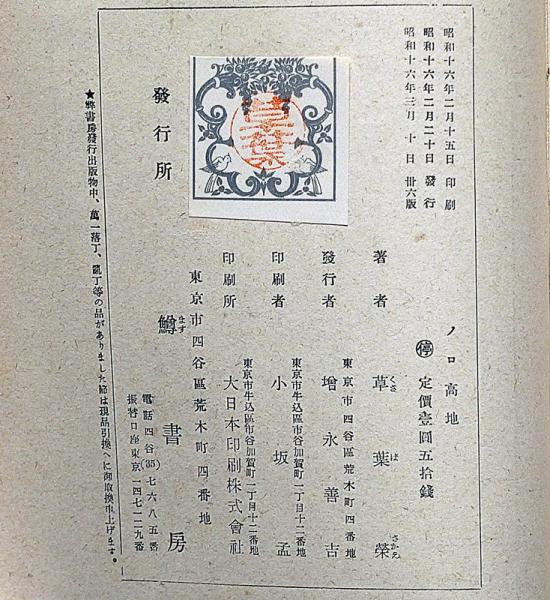 昭和十六年二月十五日 印刷
昭和十六年二月二十日 發行
昭和十六年三月 十日 卅六版
ノロ高地
停 定價壹圓五拾錢
著者 草葉榮
くさ ば さかえ
東京市四谷區荒木町四番地
發行者 增永善吉
東京市牛込區市谷加賀町一丁目十二番地
印刷者 小坂孟
東京市牛込區市谷加賀町一丁目十二番地
印刷所 大日本印刷株式會社
東京市四谷區荒木町四番地
發行所 鱒書房
ます
電話四谷(35)七六八五番
振替口座東京一四七一二九番
★弊書房發行出版物中、萬一落丁、亂丁等の品がありました節は現品引換へに御取換申上げます。